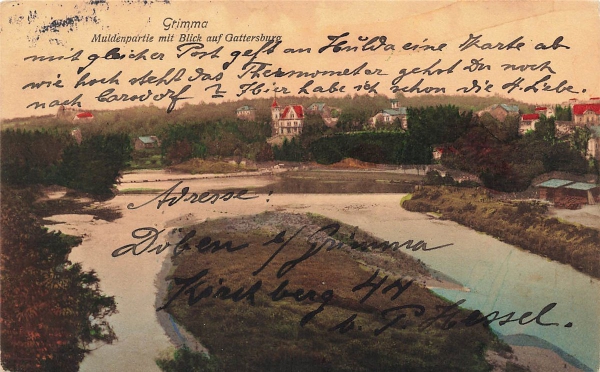 Grimma
Muldenpartie mit Blick auf Gattersburg
mit gleicher Post geht an Hulda eine Karte ab
wie hoch steht das Thermometer gehst Du noch
nach Carsdorf ? Hier habe ich schon die 4. Liebe.
Adresse:
Döben b/ Grimma
Kirchberg 4
b. P. Hessel.